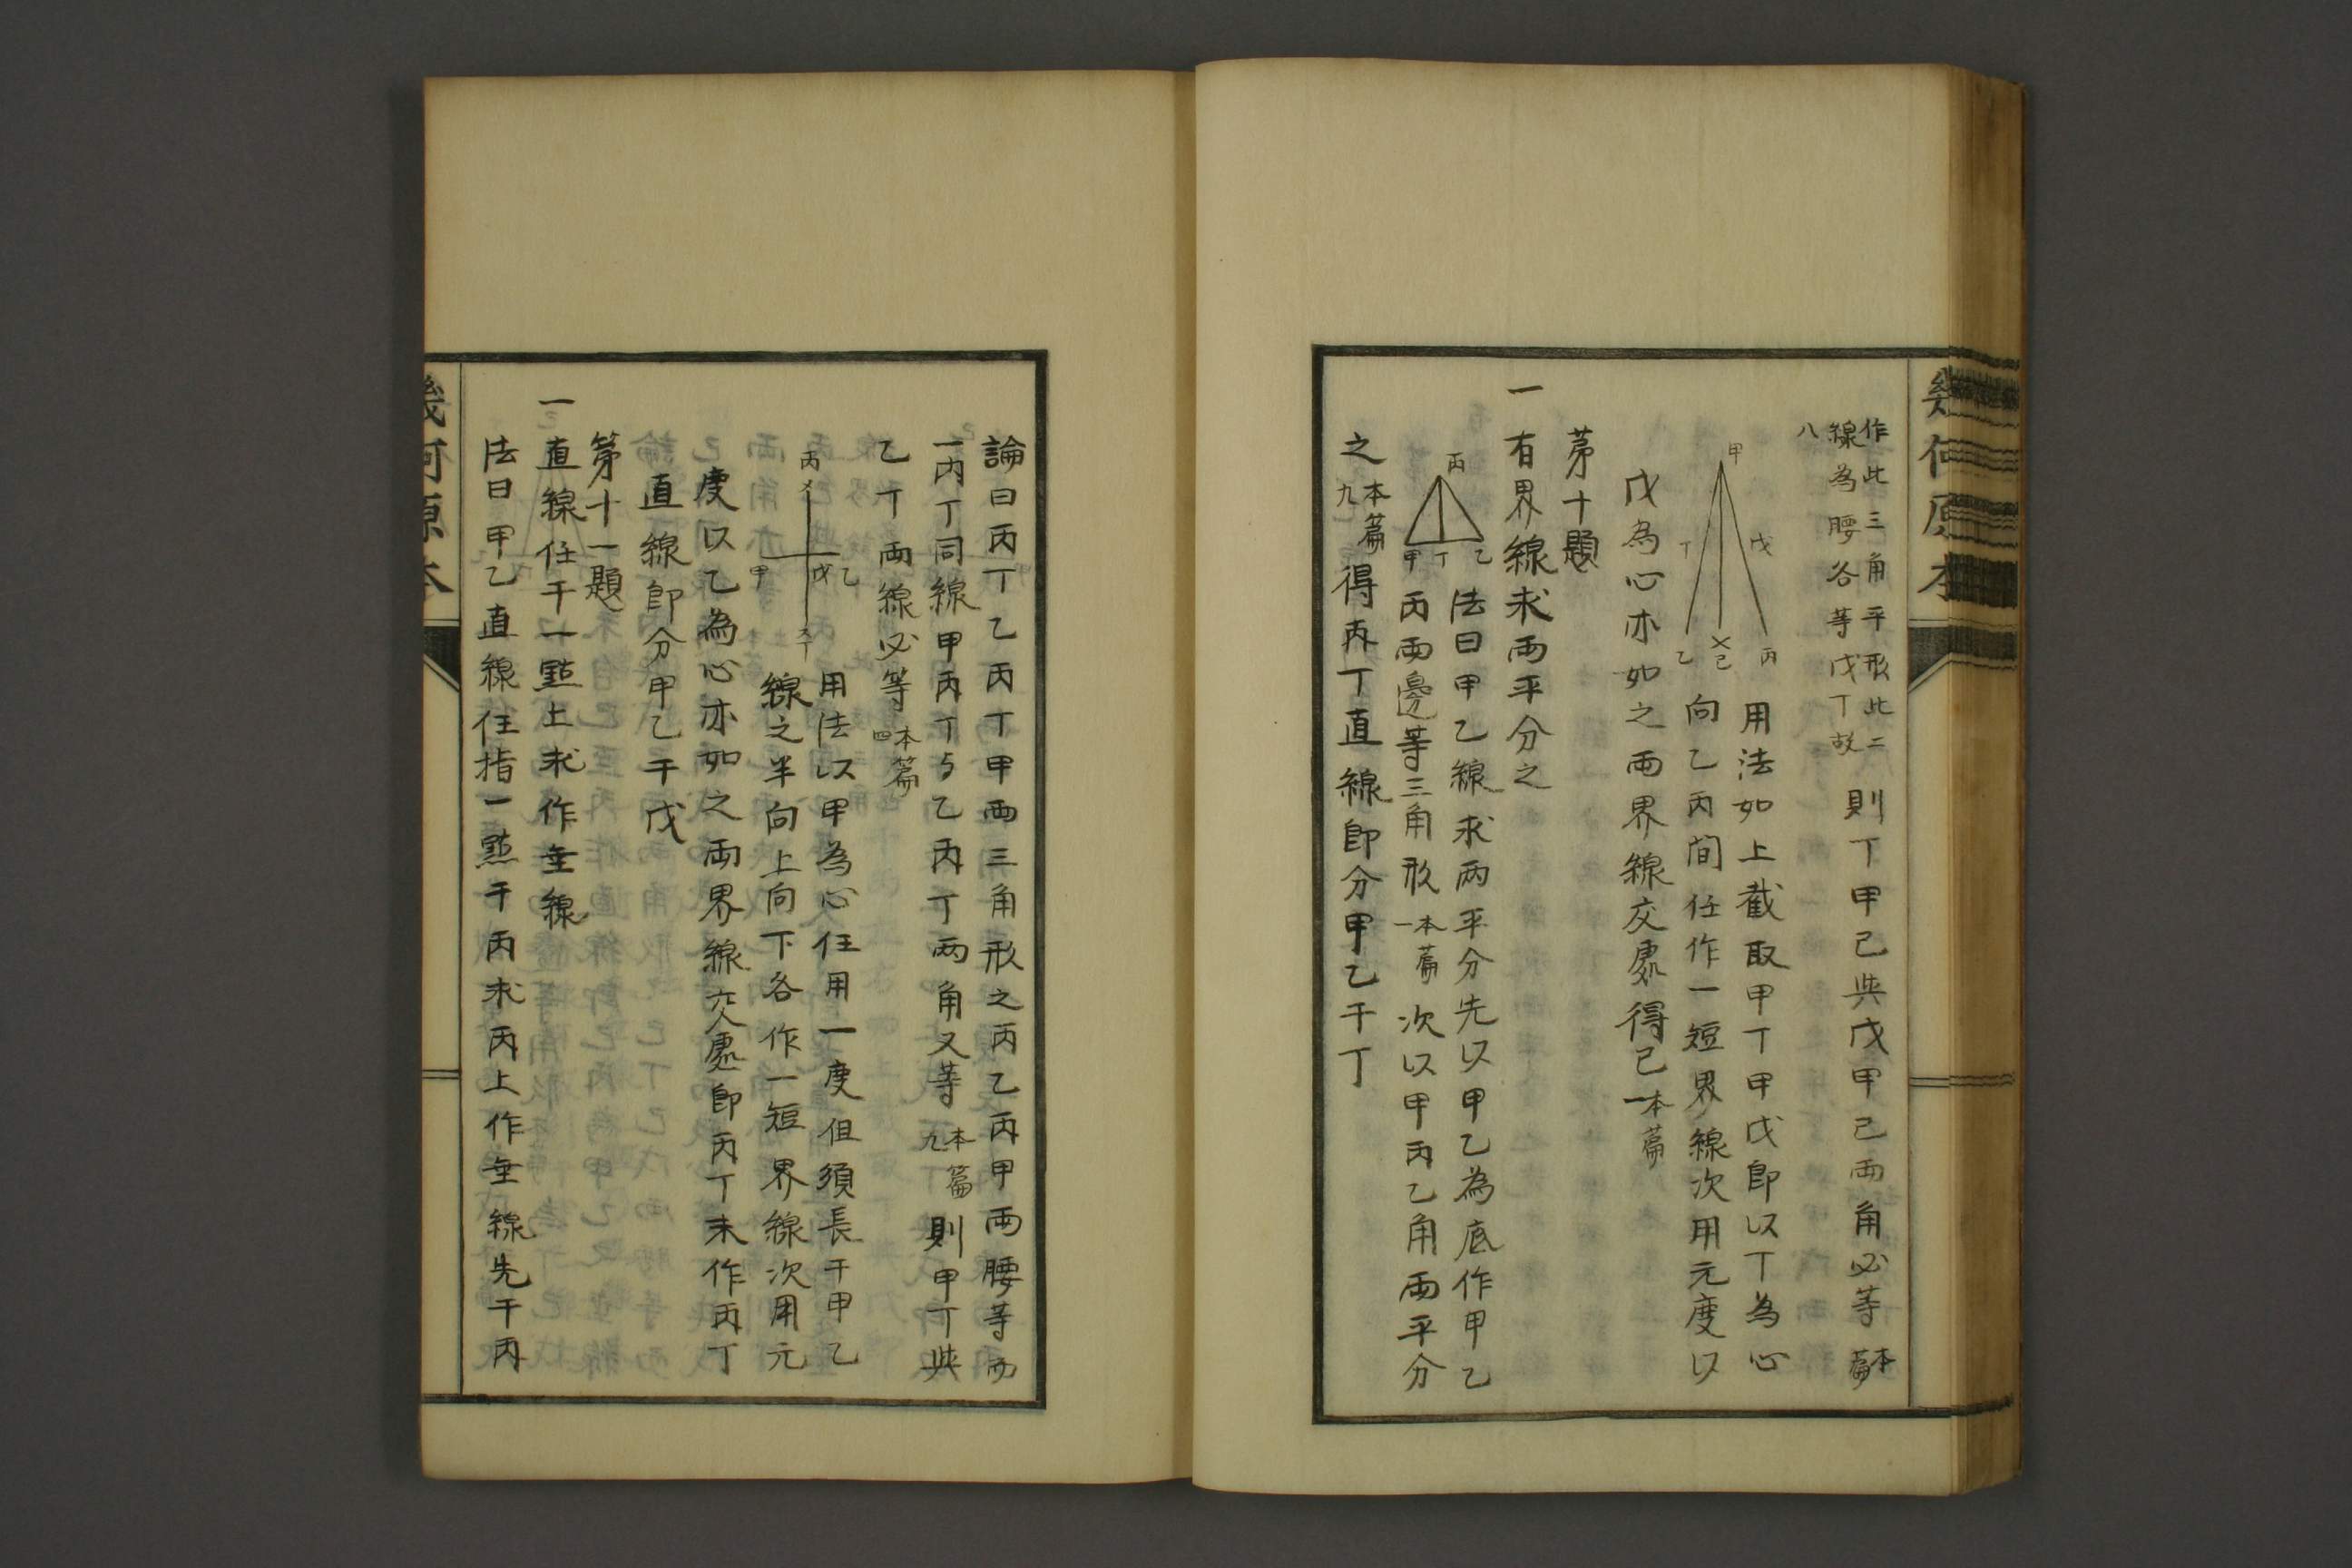 幾何原本
作此三角平形此二
線為腰各等戊丁故
則丁甲己與戊甲己兩角必等
本篇
八
甲
丁
戊
乙
己
丙
用法如上截取甲丁甲戊即以丁為心
向乙丙間任作一短界線次用元度以
戊為心亦如之兩界線交處得己
本篇
一
第十題
一
有界線求兩平分之
丙
甲
丁
乙
法曰甲乙線求兩平分先以甲乙為底作甲乙
丙兩邊等三角形
本篇
一
次以甲丙乙角兩平分
之
本篇
九
得丙丁直線即分甲乙于丁
論曰丙丁乙丙丁甲兩三角形之丙乙丙甲兩腰等而
丙丁同線甲丙丁与乙丙丁兩角又等
本篇
九
則甲丁與
乙丁兩線必等
本篇
四
丙
甲
戊
乙
丁
用法以甲為心任用一度但須長于甲乙
線之半向上向下各作一短界線次用元
度以乙為心亦如之兩界線交處即丙丁末作丙丁
直線即分甲乙于戊
第十一題
一
直線任于一點上求作垂線
法曰甲乙直線任指一點于丙求丙上作垂線先于丙
幾何原本